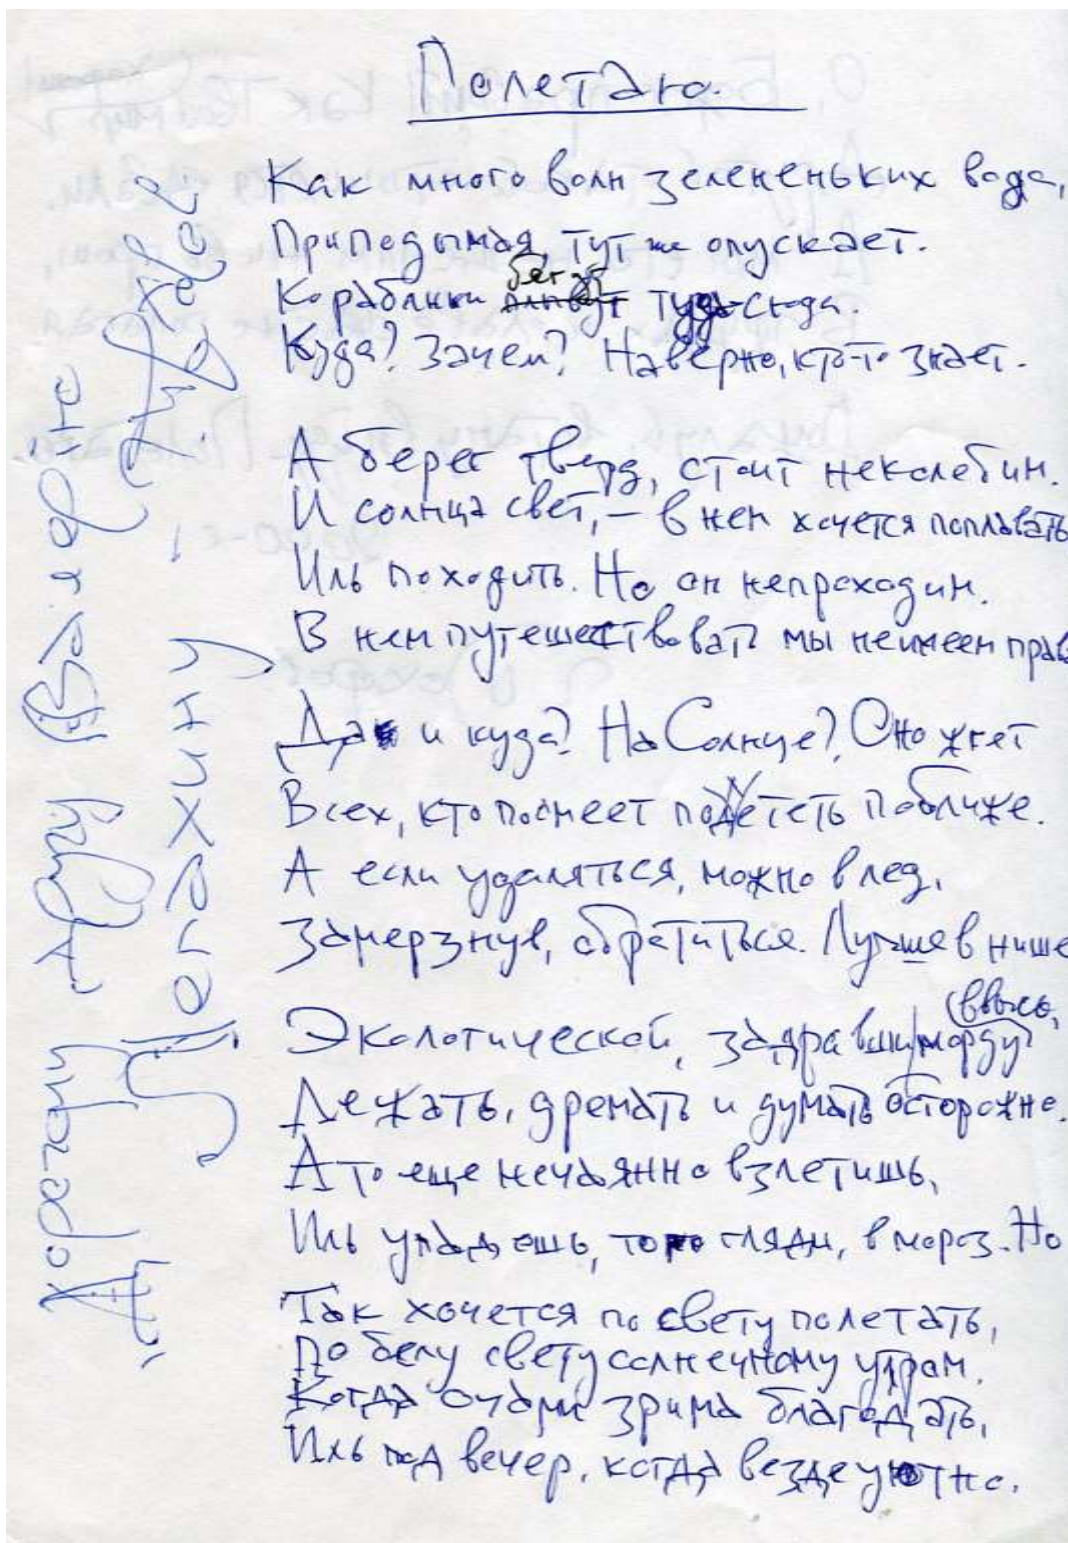 Полетаю.
Как много волн зелененьких вода,
Приподымая, тут же опускает.
Кораблики бегут туда-сюда.
Куда? Зачем? Наверно, кто-то знает.
А берег тверд, стоит неколебим.
И солнца свет, – в нем хочется поплавать
Иль походить. Но он непроходим.
В нем путешествовать мы не имеем прав
Да и куда? На Солнце? Оно жжет
Всех, кто посмеет подлететь поближе.
А если удаляться, можно в лед,
Замерзнув, обратиться. Лучше в нише
Экологической, задравши морду ввысь,
Лежать, дремать и думать осторожно.
А то еще нечаянно взлетишь,
Иль упадешь, того гляди, в мороз. Но
Так хочется по свету полетать,
По белу свету солнечному утром.
Когда очами зрима благодать,
Иль под вечер, когда везде уютно.
Дорогим
Цепахину